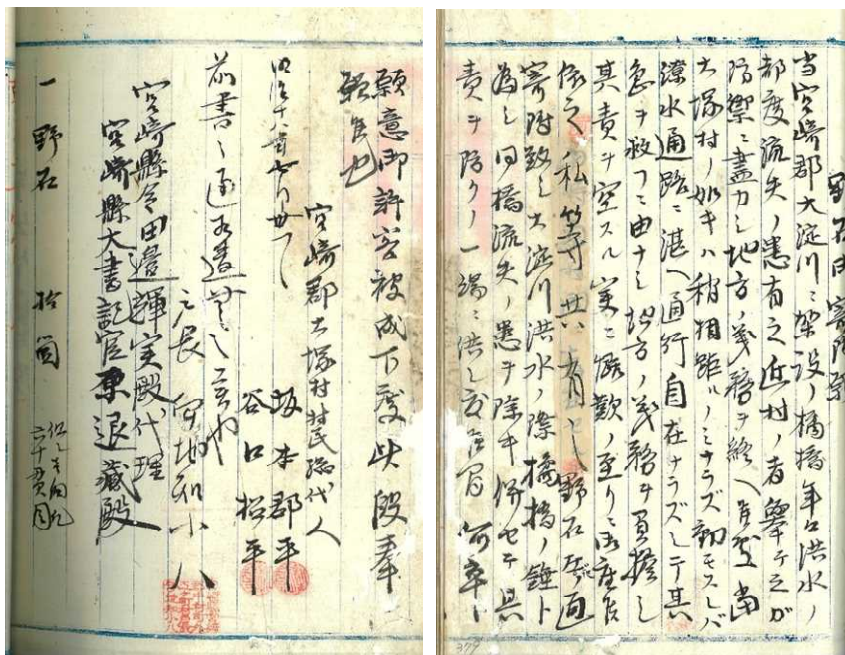 野石白寄附願
当宮崎郡大淀川ニ架設ノ橘橋年々洪水ノ
都度流失ノ患有之近村ノ者挙ケテ之ガ
防禦ニ尽力シ地方ノ義務ヲ終ヘ候処当
大塚村ノ如キハ稍相距ルノミナラズ動モスレバ
潦水通路ニ湛ヘ通行自在ナラズシテ其
急ヲ救フニ由ナシ地方ノ義務ヲ負担シ
其責ヲ空スル実ニ慨歎ノ至リニ御座候
依之私等共有之野石 通
寄附致シ大淀川洪水ノ際橘橋ノ錘ト
為シ同橋流失ノ患ヲ除キ併セテ其
責ヲ防クノ一端ニ供シ度候間何卒
願意御許容被成下度此段奉
願候也
宮崎郡大塚村村民総代人
明治十八年 月 日
坂本郡平
谷口松平
前書之通相違無之候也
戸長 宇地和小八
宮崎縣令田邉輝実殿代理
宮崎縣大書記官 退蔵殿
一野石 拾箇
但シ壱個凡
六十貫目
377